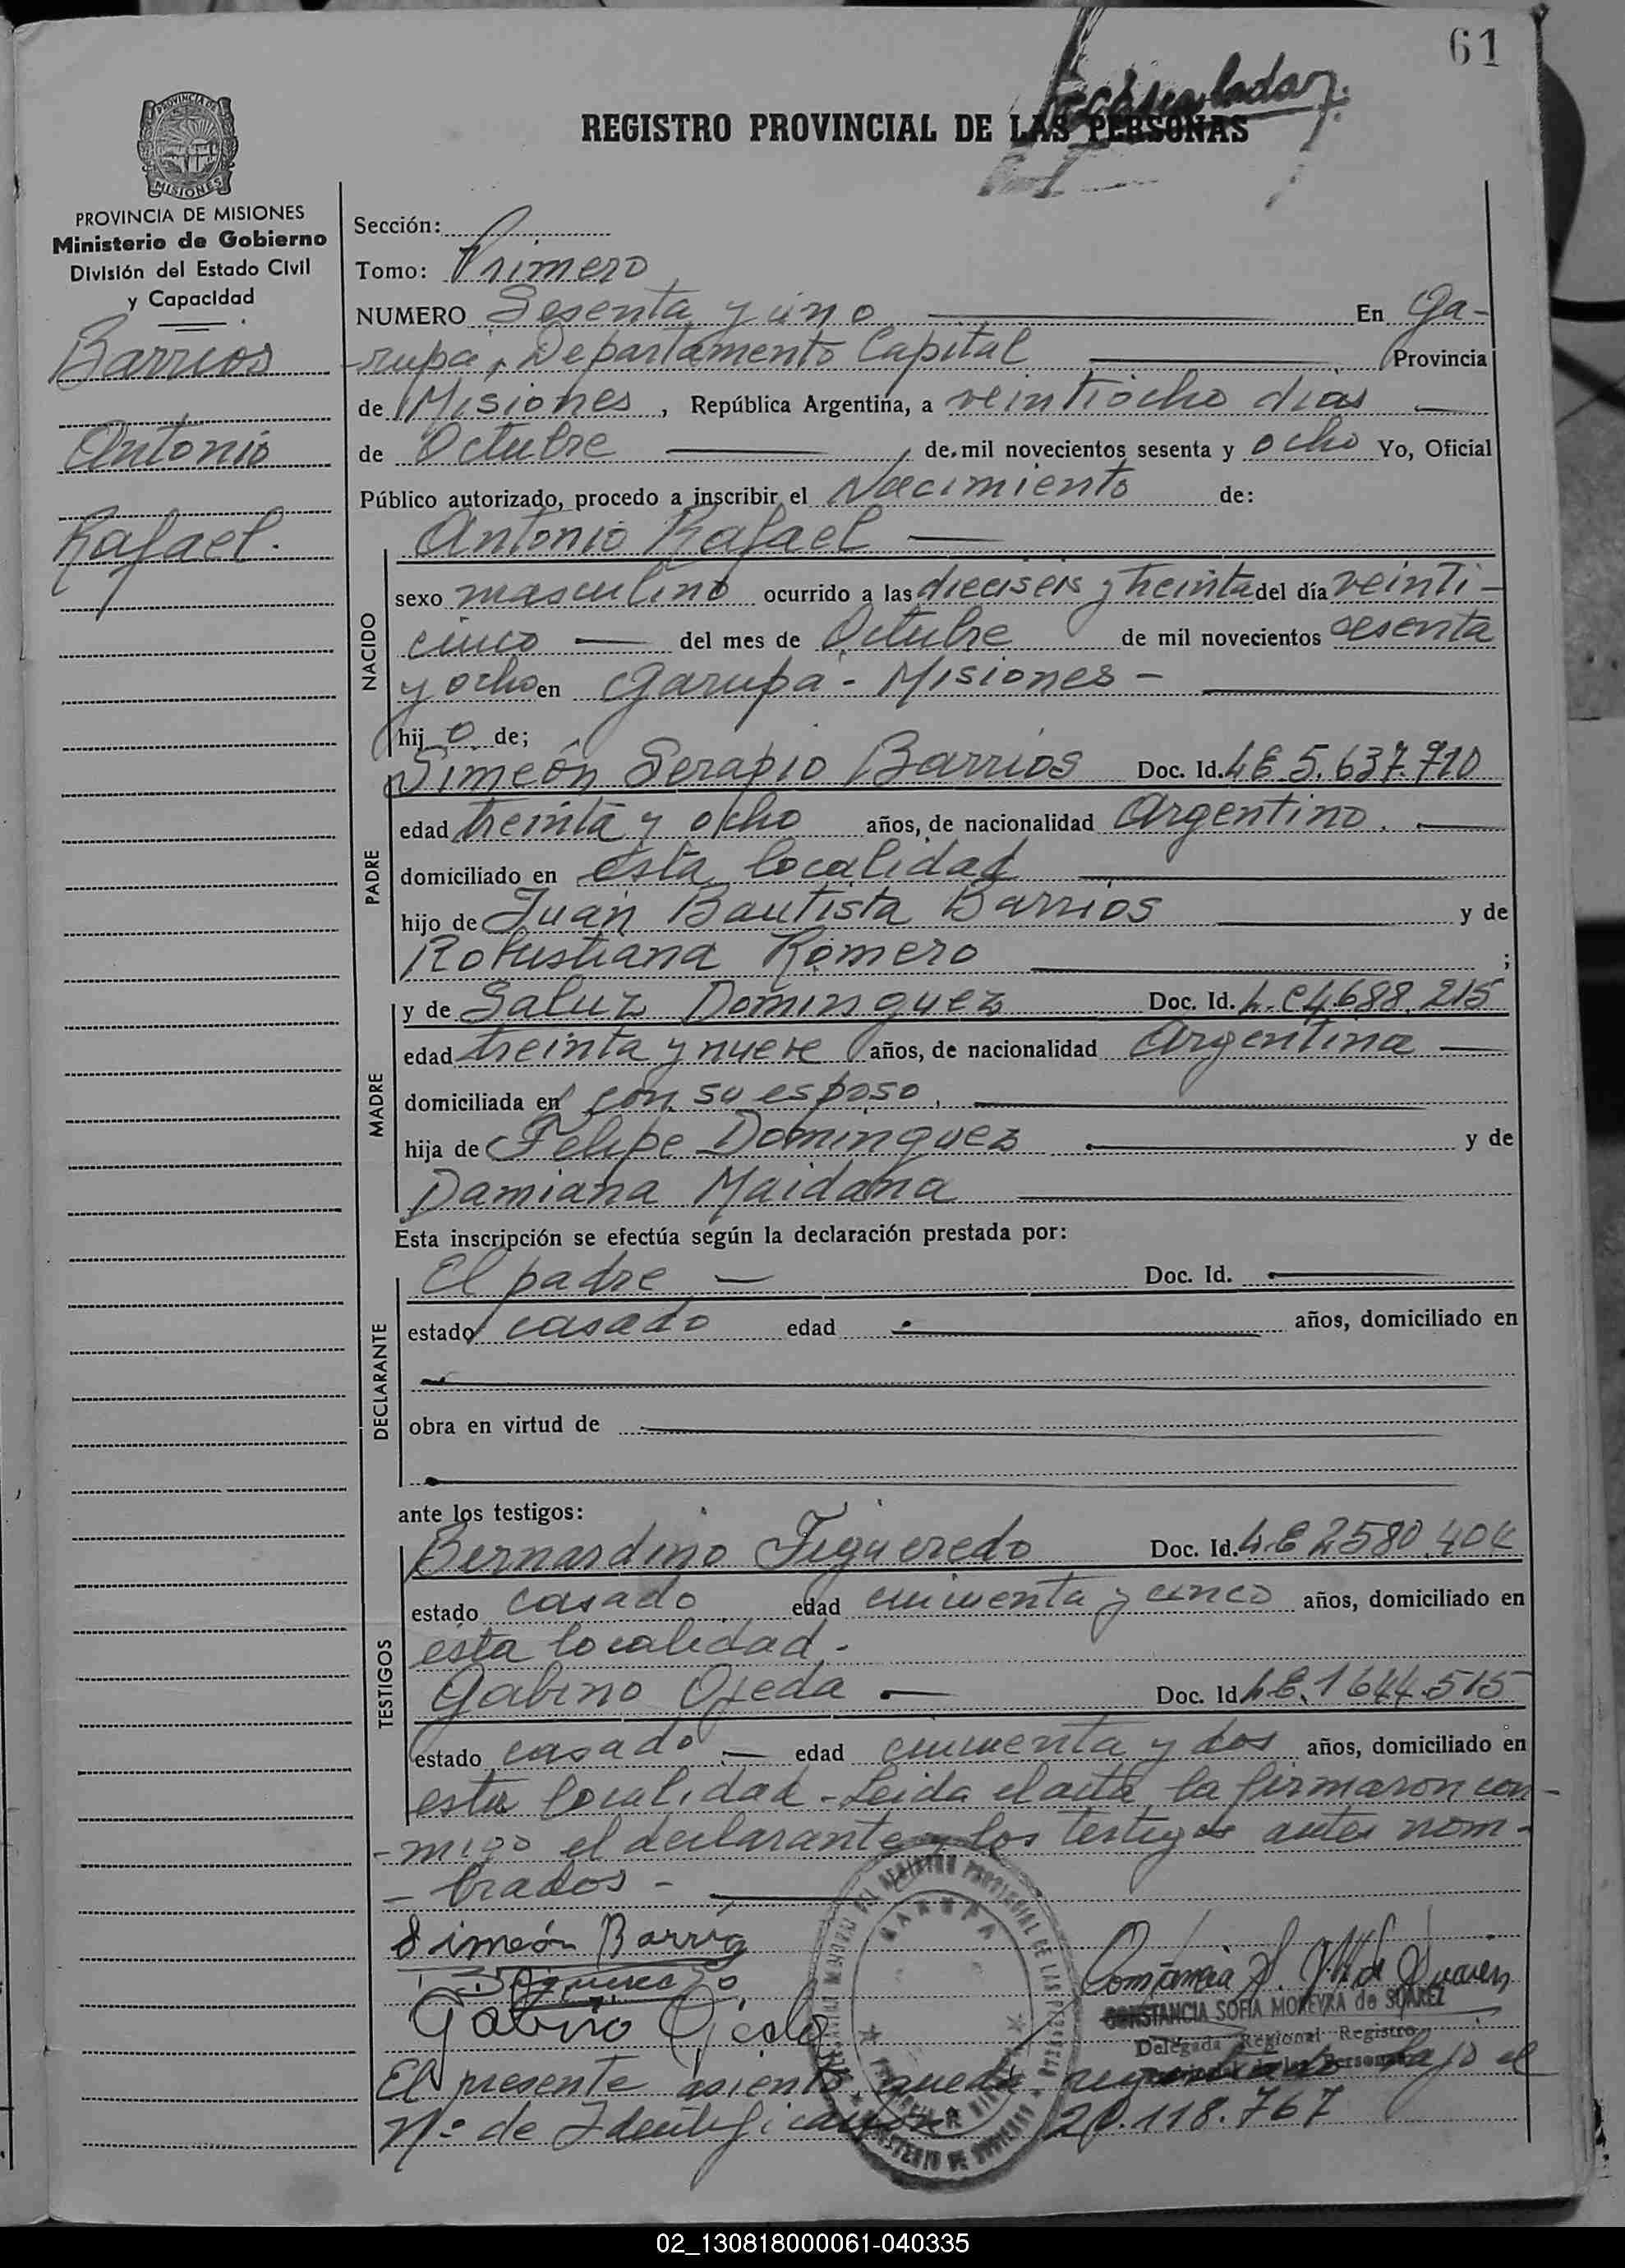 61
REGISTRO PROVINCIAL DE LAS PERSONAS
PROVINCIA DE
MISIONES
PROVINCIA DE MISIONES
Ministerio de Gobierno
División del Estado Civil
y Capacidad
Barrios
Antonio
Rafael.
Sección:
Tomo: Primero
NUMERO Sesenta y uno En Ga-
rupa, Departamento Capital Provincia
de Misiones, República Argentina, a veintiocho días
de Octubre de mil novecientos sesenta y ocho Yo, Oficial
Público autorizado, procedo a inscribir el Nacimiento de:
Antonio Rafael
NACIDO
sexo masculino ocurrido a las dieciseis y treinta del día veinti-
cinco del mes de Octubre de mil novecientos sesenta
y ocho en Garupa - Misiones -
hijo de;
PADRE
Simeón Serapio Barrios Doc. Id. LE 5.637.710
edad treinta y ocho años, de nacionalidad Argentino.
domiciliado en esta localidad
hijo de Juan Bautista Barrios y de
Robustiana Romero ;
MADRE
y de Saluz Dominguez Doc. Id. L.C 4.688.215
edad treinta y nueve años, de nacionalidad Argentina
domiciliada en con su esposo,
hija de Felipe Dominguez y de
Damiana Maidana
Esta inscripción se efectúa según la declaración prestada por:
DECLARANTE
El padre Doc. Id.
estado casado edad años, domiciliado en
obra en virtud de
ante los testigos:
TESTIGOS
Bernardino Figueredo Doc. Id. LE 2580.404
estado casado edad cincuenta y cinco años, domiciliado en
esta localidad.
Gabino Ojeda Doc. Id LE. 1644.515
estado casado edad cincuenta y dos años, domiciliado en
esta localidad - Leida el acta la firmaron con-
-migo el declarante y los testigos antes nom-
-brados -
Simeón Barrio
Gabino Ojeda
GARUPA
CONSTANCIA SOFIA MOREYRA de SUAREZ
Delegada Regional Registro
Provincial de las Personas
El presente asiento queda bajo el
Nº de Identificación 20.118.767
02_130818000061-040335